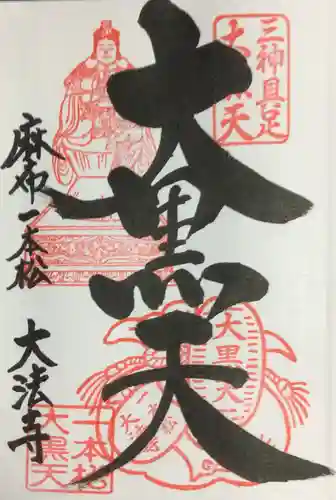 三神具足
大黒天
大黒天
麻布一本松
大法寺
大黒天
一本松
大黒天
一本松